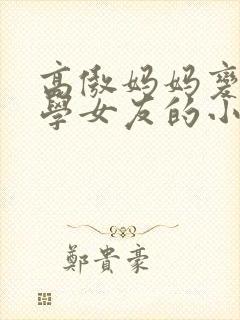 高傲妈妈变
學女友的小
鄭貴豪